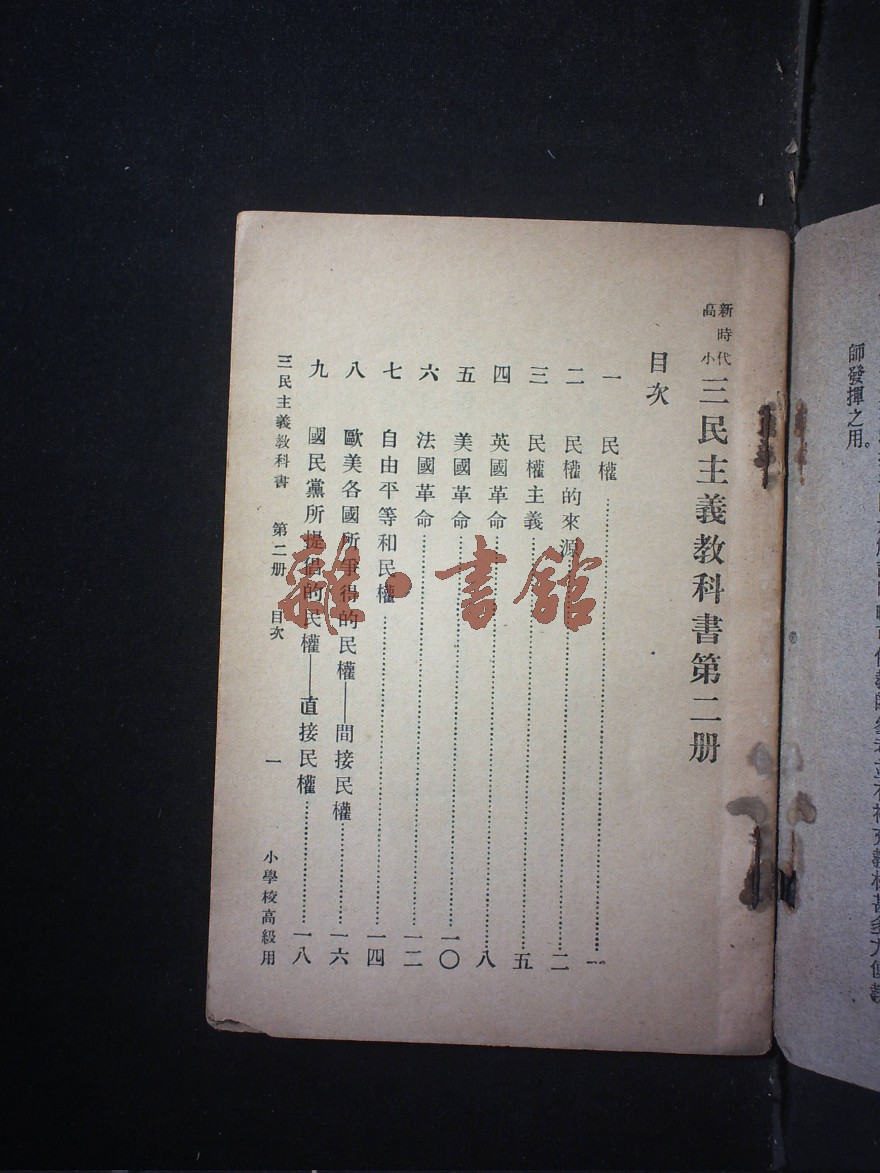 師發揮之用。
新時代高小三民主義教科書第二册
目次
一 民權 一
二 民權的來源 二
三 民權主義 五
四 英國革命 八
五 美國革命 一〇
六 法國革命 一二
七 自由平等和民權 一四
八 歐美各國所爭得的民權——間接民權 一六
九 國民黨所提倡的民權——直接民權 一八
三民主義教科書 第二册 目次 一 小學校高級用
雜·書館